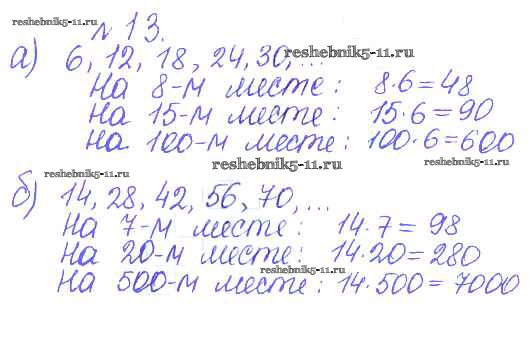 № 13.
reshebnik5-11.ru
а) 6, 12, 18, 24, 30, ... reshebnik5-11.ru
На 8-м месте: 8·6=48
На 15-м месте: 15·6=90
На 100-м месте: 100·6=600
reshebnik5-11.ru reshebnik5-11.ru
reshebnik5-11.ru
б) 14, 28, 42, 56, 70, ...
На 7-м месте: 14·7=98
На 20-м месте: 14·20=280
reshebnik5-11.ru
На 500-м месте: 14·500=7000